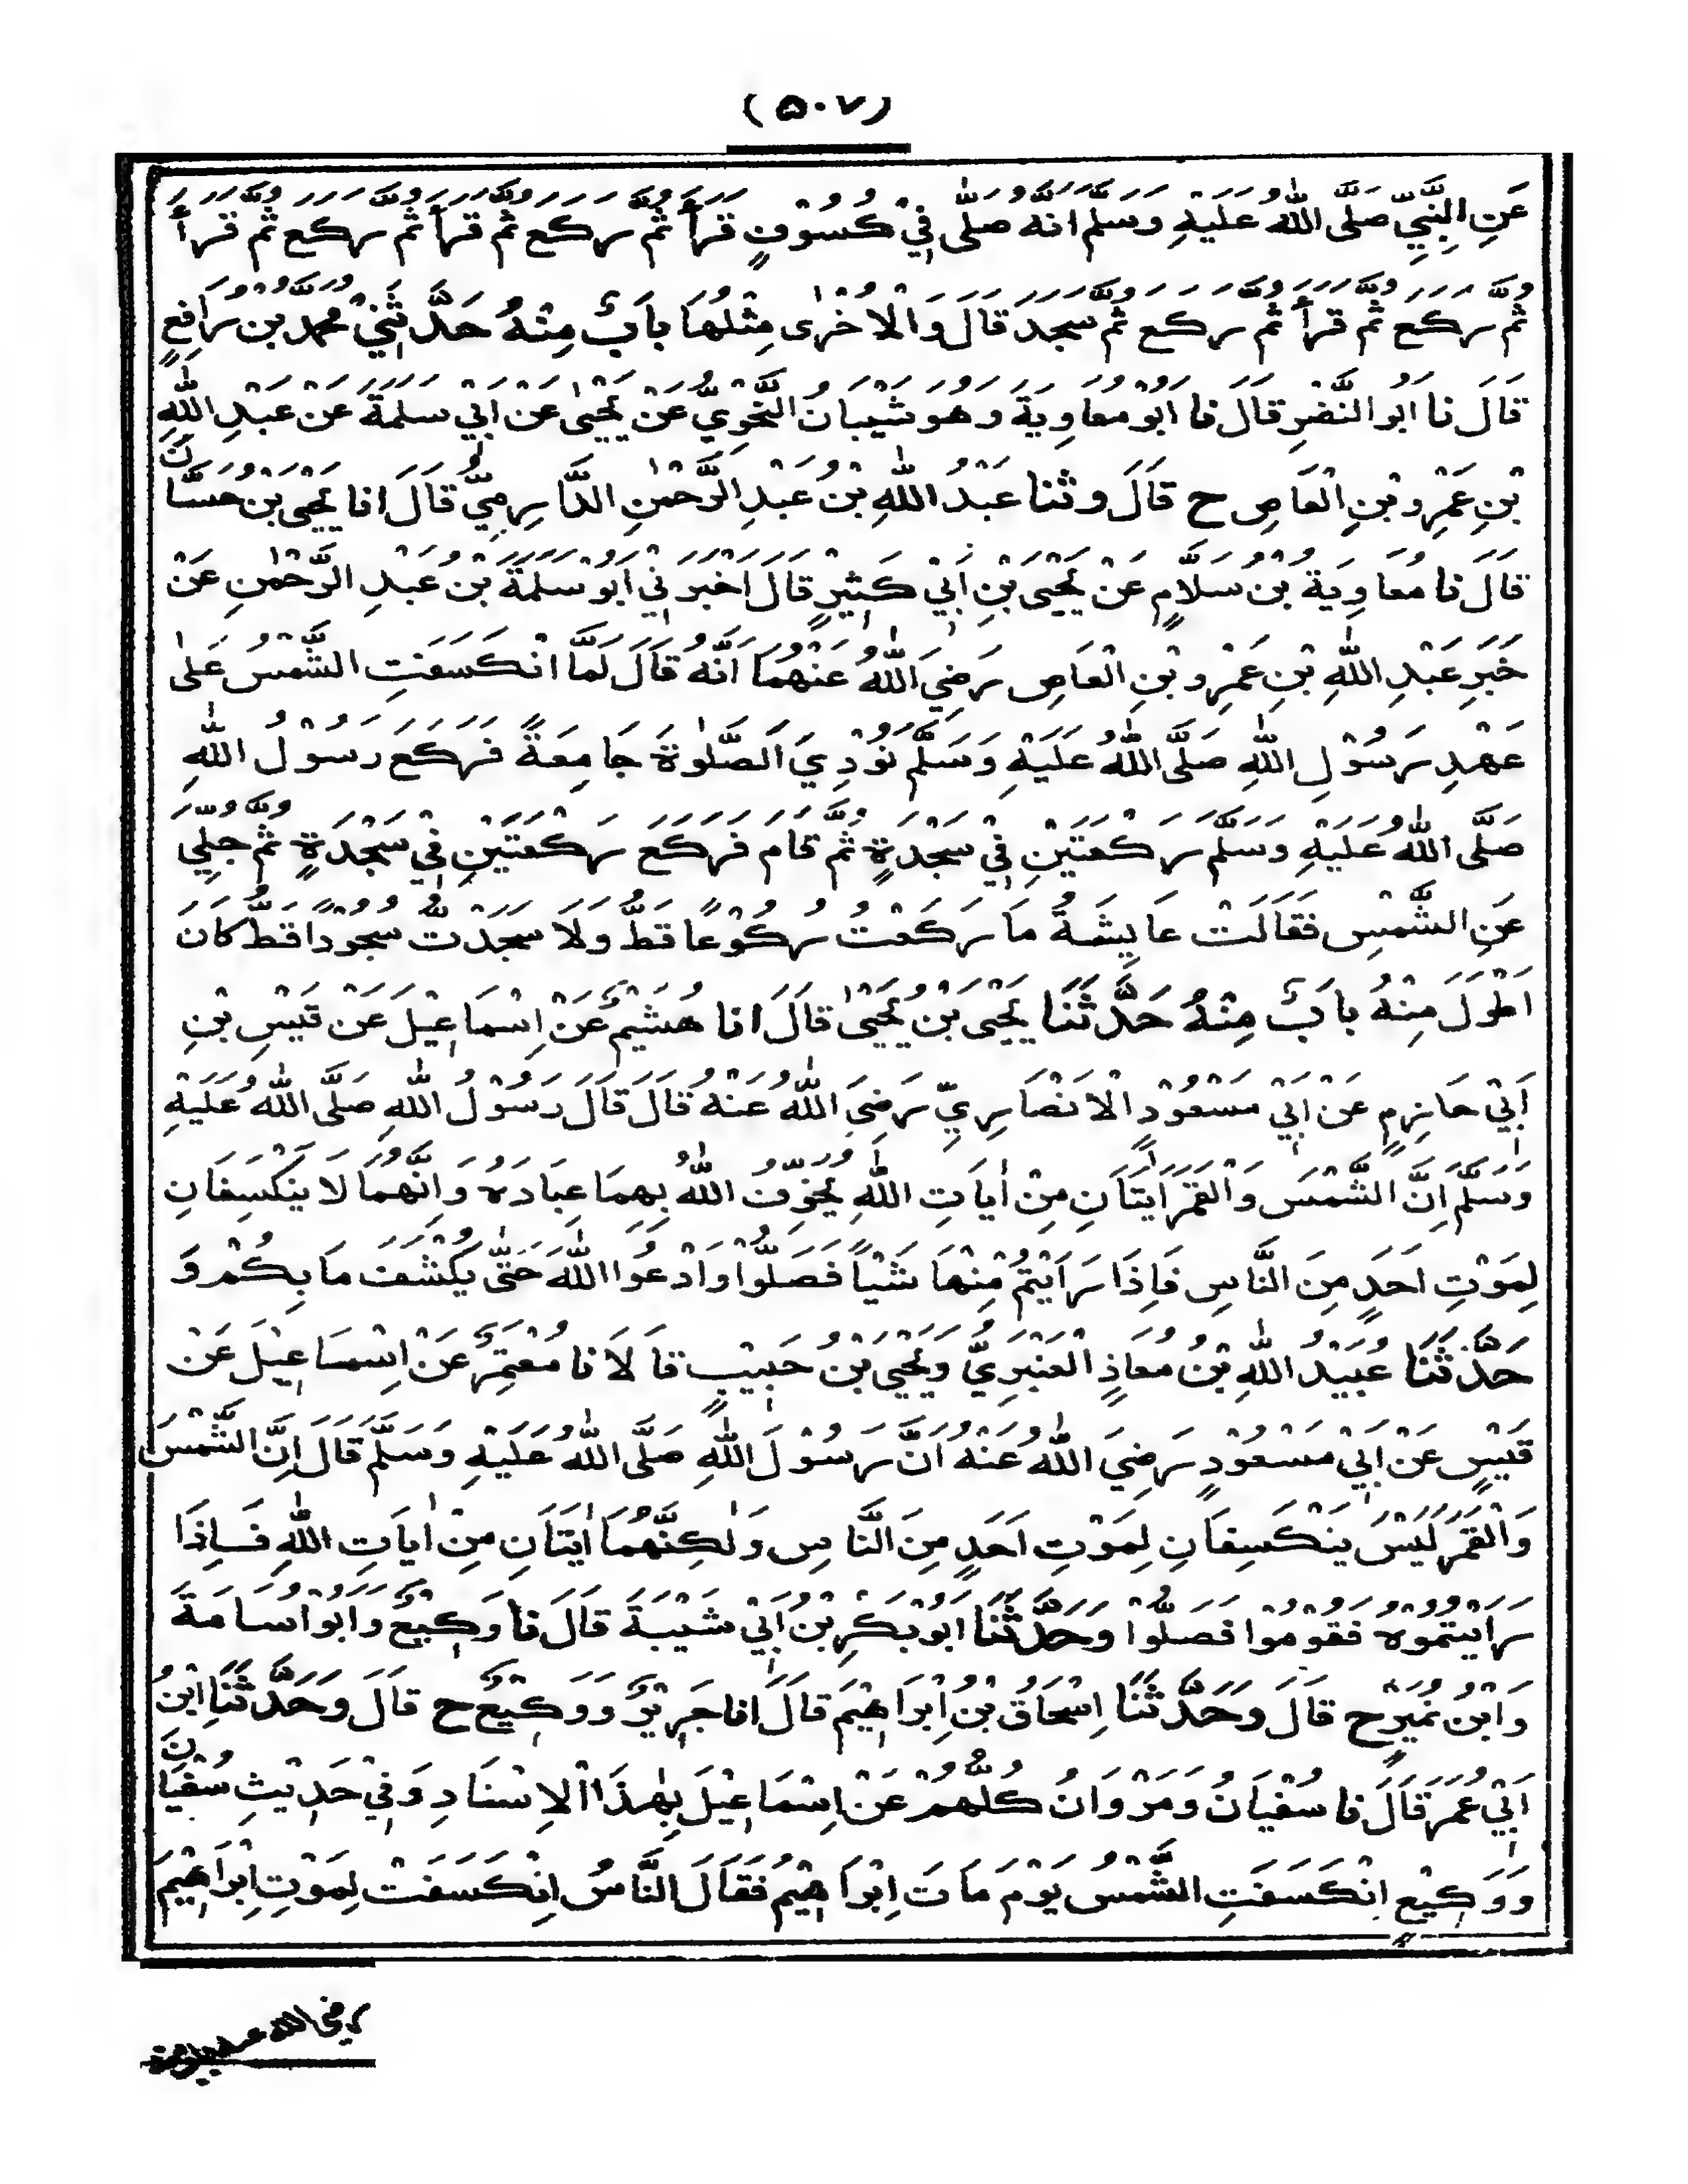 (٥٠٧)
عَنِ النَّبِيِّ صَلَّى اللهُ عَلَيْهِ وَسَلَّمَ اَنَّهٗ صَلَّى فِيْ كُسُوْفٍ قَرَأَ ثُمَّ رَكَعَ ثُمَّ قَرَأَ ثُمَّ رَكَعَ ثُمَّ قَرَأَ
ثُمَّ رَكَعَ ثُمَّ قَرَأَ ثُمَّ رَكَعَ ثُمَّ سَجَدَ قَالَ وَالْاُخْرٰى مِثْلُهَا بَابٌ مِنْهُ حَدَّثَنِيْ مُحَمَّدُ بْنُ رَافِعٍ
قَالَ نَا اَبُو النَّضْرِ قَالَ نَا اَبُوْ مُعَاوِيَةَ وَهُوَ شَيْبَانُ النَّحْوِيُّ عَنْ يَحْيٰى عَنْ اَبِيْ سَلَمَةَ عَنْ عَبْدِ اللهِ
بْنِ عَمْرِو بْنِ الْعَاصِ ح قَالَ وَثَنَا عَبْدُ اللهِ بْنُ عَبْدِ الرَّحْمٰنِ الدَّارِمِيُّ قَالَ اَنَا يَحْيَى بْنُ حَسَّانَ
قَالَ نَا مُعَاوِيَةُ بْنُ سَلَّامٍ عَنْ يَحْيَى بْنِ اَبِيْ كَثِيْرٍ قَالَ اَخْبَرَنِيْ اَبُوْ سَلَمَةَ بْنُ عَبْدِ الرَّحْمٰنِ عَنْ
خَبَرِ عَبْدِ اللهِ بْنِ عَمْرِو بْنِ الْعَاصِ رَضِيَ اللهُ عَنْهُمَا اَنَّهُ قَالَ لَمَّا انْكَسَفَتِ الشَّمْسُ عَلٰى
عَهْدِ رَسُوْلِ اللهِ صَلَّى اللهُ عَلَيْهِ وَسَلَّمَ نُوْدِيَ الصَّلٰوةَ جَامِعَةً فَرَكَعَ رَسُوْلُ اللهِ
صَلَّى اللهُ عَلَيْهِ وَسَلَّمَ رَكْعَتَيْنِ فِيْ سَجْدَةٍ ثُمَّ قَامَ فَرَكَعَ رَكْعَتَيْنِ فِيْ سَجْدَةٍ ثُمَّ جُلِّيَ
عَنِ الشَّمْسِ فَقَالَتْ عَايِشَةُ مَا رَكَعْتُ رُكُوْعًا قَطُّ وَلَا سَجَدْتُ سُجُوْدًا قَطُّ كَانَ
اَطْوَلَ مِنْهُ بَابٌ مِنْهُ حَدَّثَنَا يَحْيَى بْنُ يَحْيٰى قَالَ اَنَا هُشَيْمٌ عَنْ اِسْمَاعِيْلَ عَنْ قَيْسِ بْنِ
اَبِيْ حَازِمٍ عَنْ اَبِيْ مَسْعُوْدِ الْاَنْصَارِيِّ رَضِيَ اللهُ عَنْهُ قَالَ قَالَ رَسُوْلُ اللهِ صَلَّى اللهُ عَلَيْهِ
وَسَلَّمَ اِنَّ الشَّمْسَ وَالْقَمَرَ اٰيَتَانِ مِنْ اٰيَاتِ اللهِ يُخَوِّفُ اللهُ بِهِمَا عِبَادَهٗ وَاِنَّهُمَا لَا يَنْكَسِفَانِ
لِمَوْتِ اَحَدٍ مِنَ النَّاسِ فَاِذَا رَاَيْتُمْ مِنْهَا شَيْأً فَصَلُّوْا وَادْعُوا اللهَ حَتّٰى يَكْشِفَ مَا بِكُمْ وَ
حَدَّثَنَا عُبَيْدُ اللهِ بْنُ مُعَاذٍ الْعَنْبَرِيُّ وَيَحْيَى بْنُ حَبِيْبٍ قَالَا نَا مُعْتَمِرٌ عَنْ اِسْمَاعِيْلَ عَنْ
قَيْسٍ عَنْ اَبِيْ مَسْعُوْدٍ رَضِيَ اللهُ عَنْهُ اَنَّ رَسُوْلَ اللهِ صَلَّى اللهُ عَلَيْهِ وَسَلَّمَ قَالَ اِنَّ الشَّمْسَ
وَالْقَمَرَ لَيْسَ يَنْكَسِفَانِ لِمَوْتِ اَحَدٍ مِنَ النَّاسِ وَلٰكِنَّهُمَا اٰيَتَانِ مِنْ اٰيَاتِ اللهِ فَاِذَا
رَاَيْتُمُوْهُ فَقُوْمُوْا فَصَلُّوْا وَحَدَّثَنَا اَبُوْبَكْرِ بْنُ اَبِيْ شَيْبَةَ قَالَ نَا وَكِيْعٌ وَاَبُوْ اُسَامَةَ
وَابْنُ نُمَيْرٍ ح قَالَ وَحَدَّثَنَا اِسْحَاقُ بْنُ اِبْرَاهِيْمَ قَالَ اَنَا جَرِيْرٌ وَوَكِيْعٌ ح قَالَ وَحَدَّثَنَا ابْنُ
اَبِيْ عُمَرَ قَالَ نَا سُفْيَانُ وَمَرْوَانُ كُلُّهُمْ عَنْ اِسْمَاعِيْلَ بِهٰذَا الْاِسْنَادِ وَفِيْ حَدِيْثِ سُفْيَانَ
وَوَكِيْعٍ اِنْكَسَفَتِ الشَّمْسُ يَوْمَ مَاتَ اِبْرَاهِيْمُ فَقَالَ النَّاسُ اِنْكَسَفَتْ لِمَوْتِ اِبْرَاهِيْمَ
رضی الله عنه